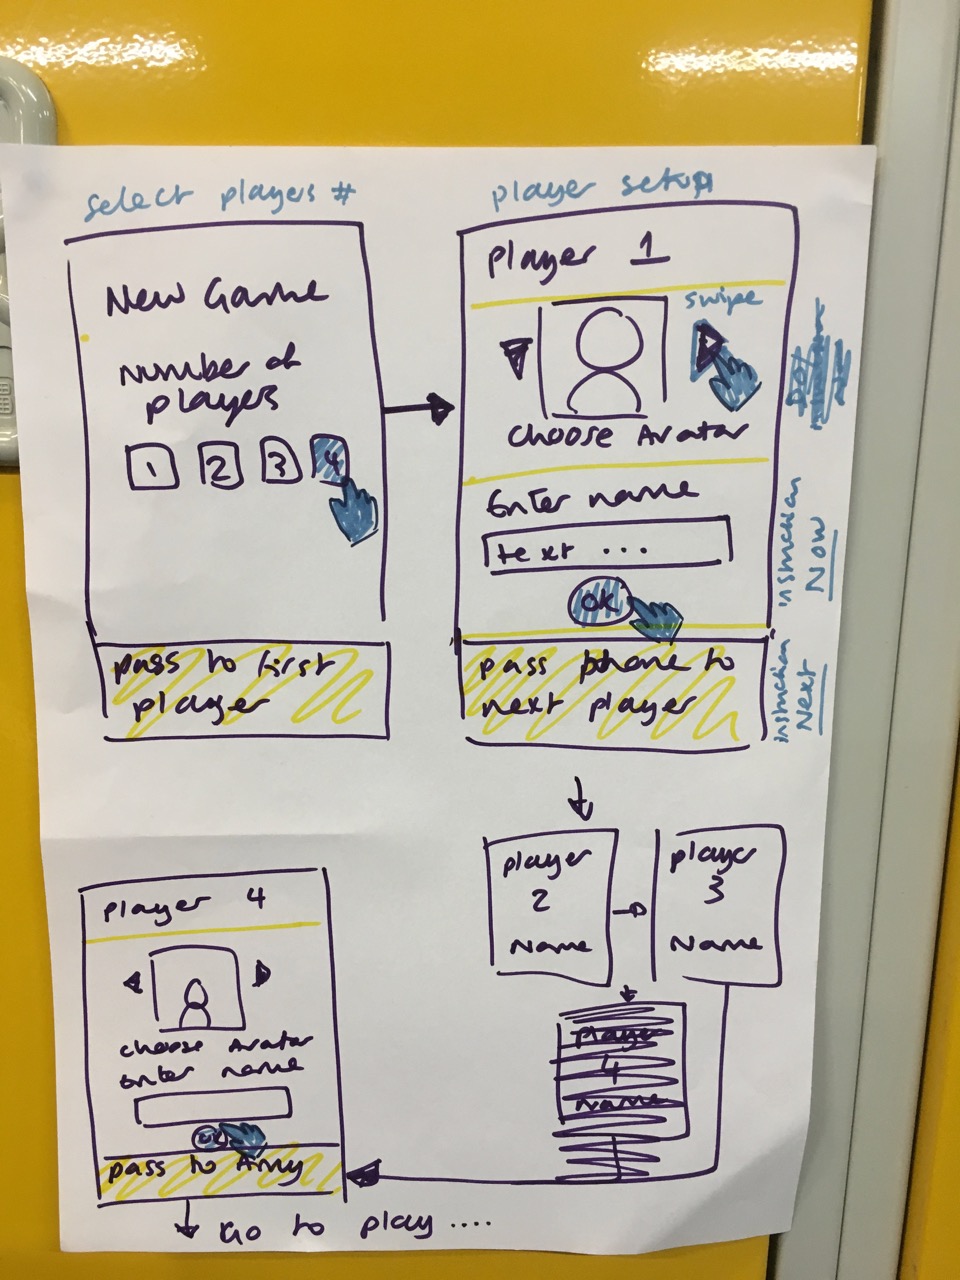 select players #
New Game
Number of
players
1 2 3 4
pass to first
player
player setup
player 1
swipe
choose Avatar
Enter name
text ...
OK
pass phone to
next player
instruction
Now
instruction
Next
player
2
Name
player
3
Name
player
4
name
player 4
choose Avatar
Enter name
OK
pass to Amy
Go to play ....